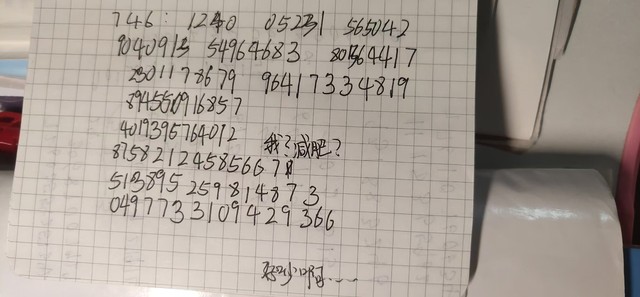 746: 1240 05231 565042
9040913 54964683 80564417
2301178679 96417334819
894550916857
4019395764012
我?减肥?
8158212458566 78
513895 259814873
0497733109429366